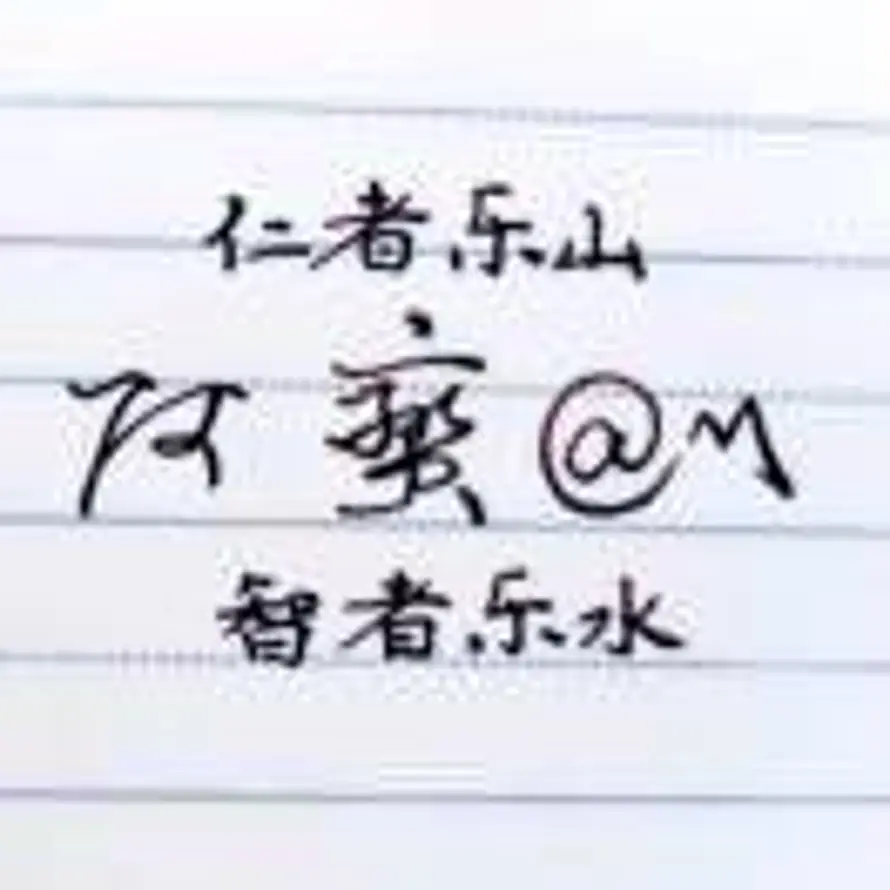 仁者乐山
阿蛮@M
智者乐水